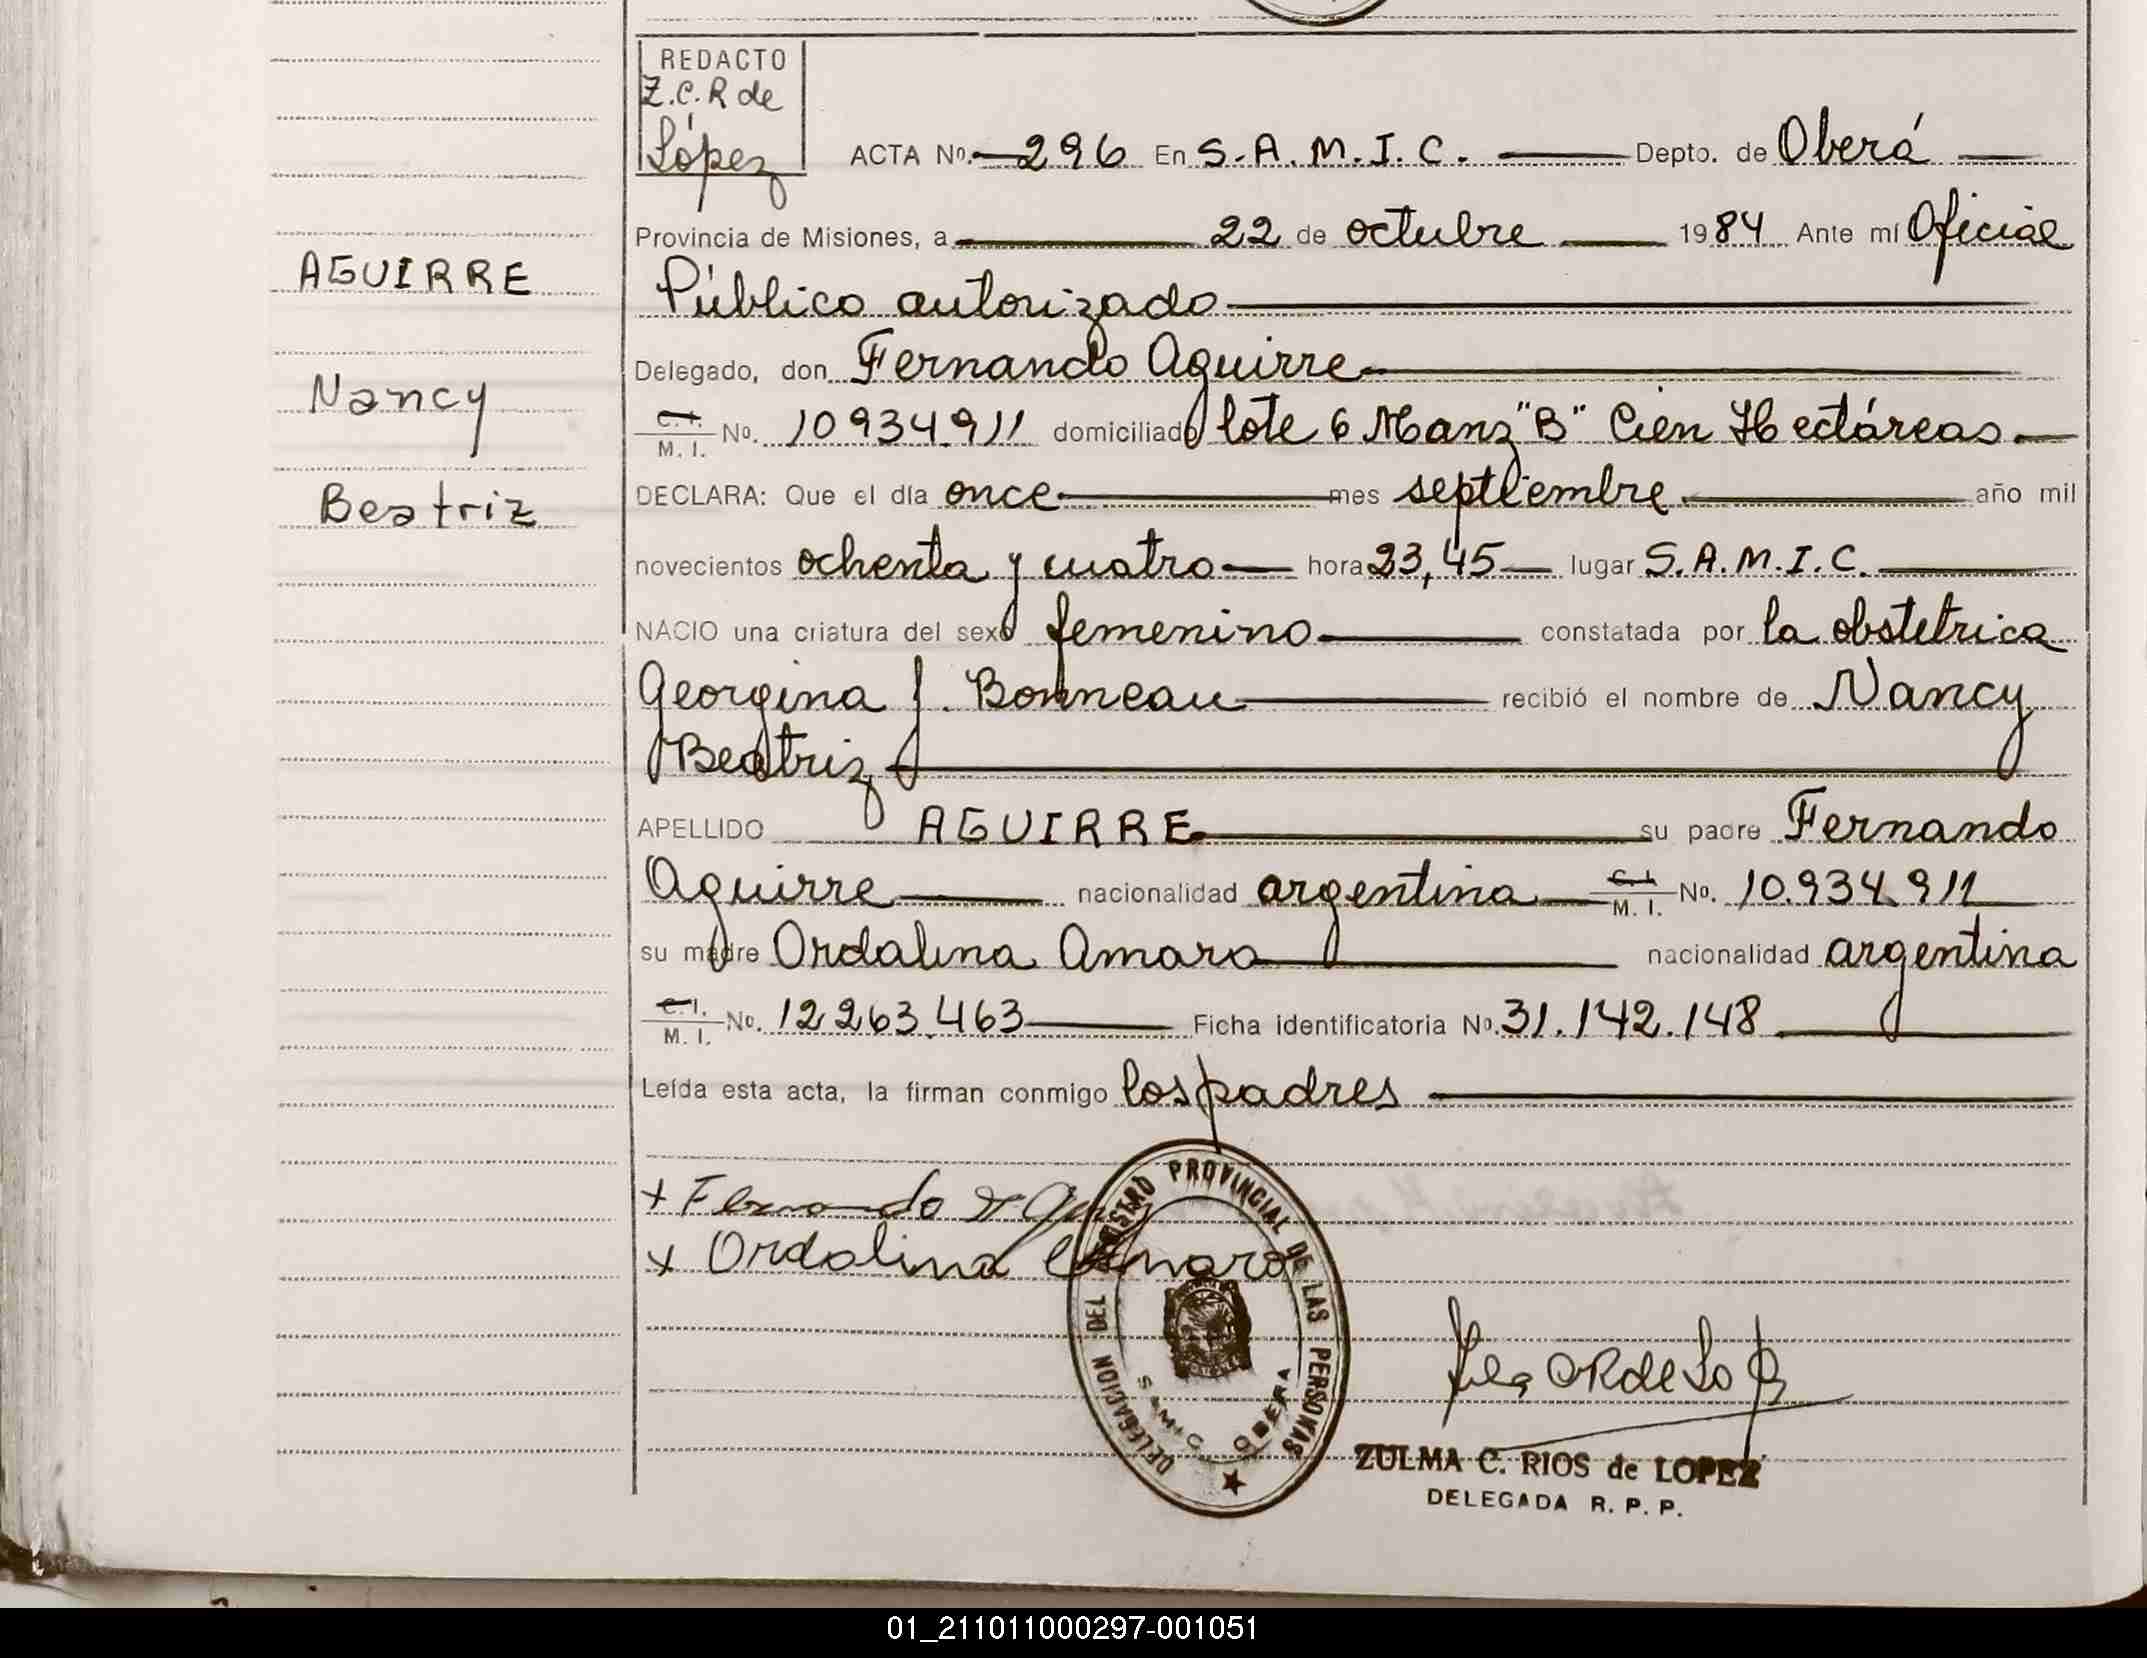 REDACTO
Z.C.R de
López
ACTA No. 296 En S.A.M.I.C. Depto. de Oberá
Provincia de Misiones, a 22 de octubre 1984 Ante mí Oficial
Público autorizado
AGUIRRE
Delegado, don Fernando Aguirre
Nancy
C.I. M.I. No. 10934.911 domiciliado lote 6 Manz "B" Cien Hectáreas
DECLARA: Que el día once mes septiembre año mil
Beatriz
novecientos ochenta y cuatro hora 23,45 lugar S.A.M.I.C.
NACIO una criatura del sexo femenino constatada por la obstetrica
Georgina J. Bonneau recibió el nombre de Nancy
Beatriz
APELLIDO AGUIRRE su padre Fernando
Aguirre nacionalidad argentina C.I. M.I. No. 10.934.911
su madre Ordalina Amaro nacionalidad argentina
C.I. M.I. No. 12263.463 Ficha identificatoria No. 31.142.148
Leída esta acta, la firman conmigo los padres
x Fernando
x Ordalina Amaro
DELEGACION DEL REGISTRO PROVINCIAL DE LAS PERSONAS
SAMIC OBERA
ZULMA C. RIOS de LOPEZ
DELEGADA R. P. P.
01_211011000297-001051